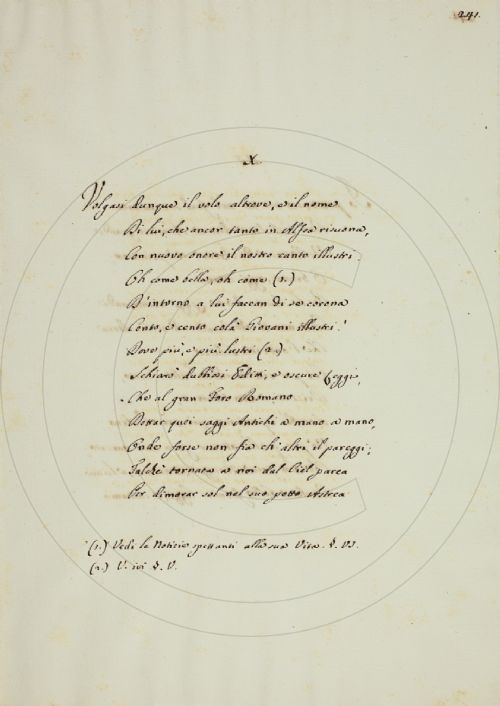 241.
X
Volgasi dunque il volo altrove, e il nome
Di lui, che ancor tanto in Alfea risuona,
Con nuovo onore il nostro canto illustri.
Oh come bella, oh come (1.)
D'intorno a lui facean di se corona
Cento, e cento colà Giovani illustri!
Dove più, e più lustri (2.)
Schiarò dubbiosi Editti, e oscure Leggi,
Che al gran Foro Romano
Dettar quei saggi Antichi a mano a mano,
Onde forse non fia ch'altri il pareggi;
Talchè tornata a noi dal Ciel parea
Per dimorar sol nel suo petto Astrea
(1.) Vedi le Notizie spettanti alla sua Vita. §. VI.
(2.) V. ivi §. V.